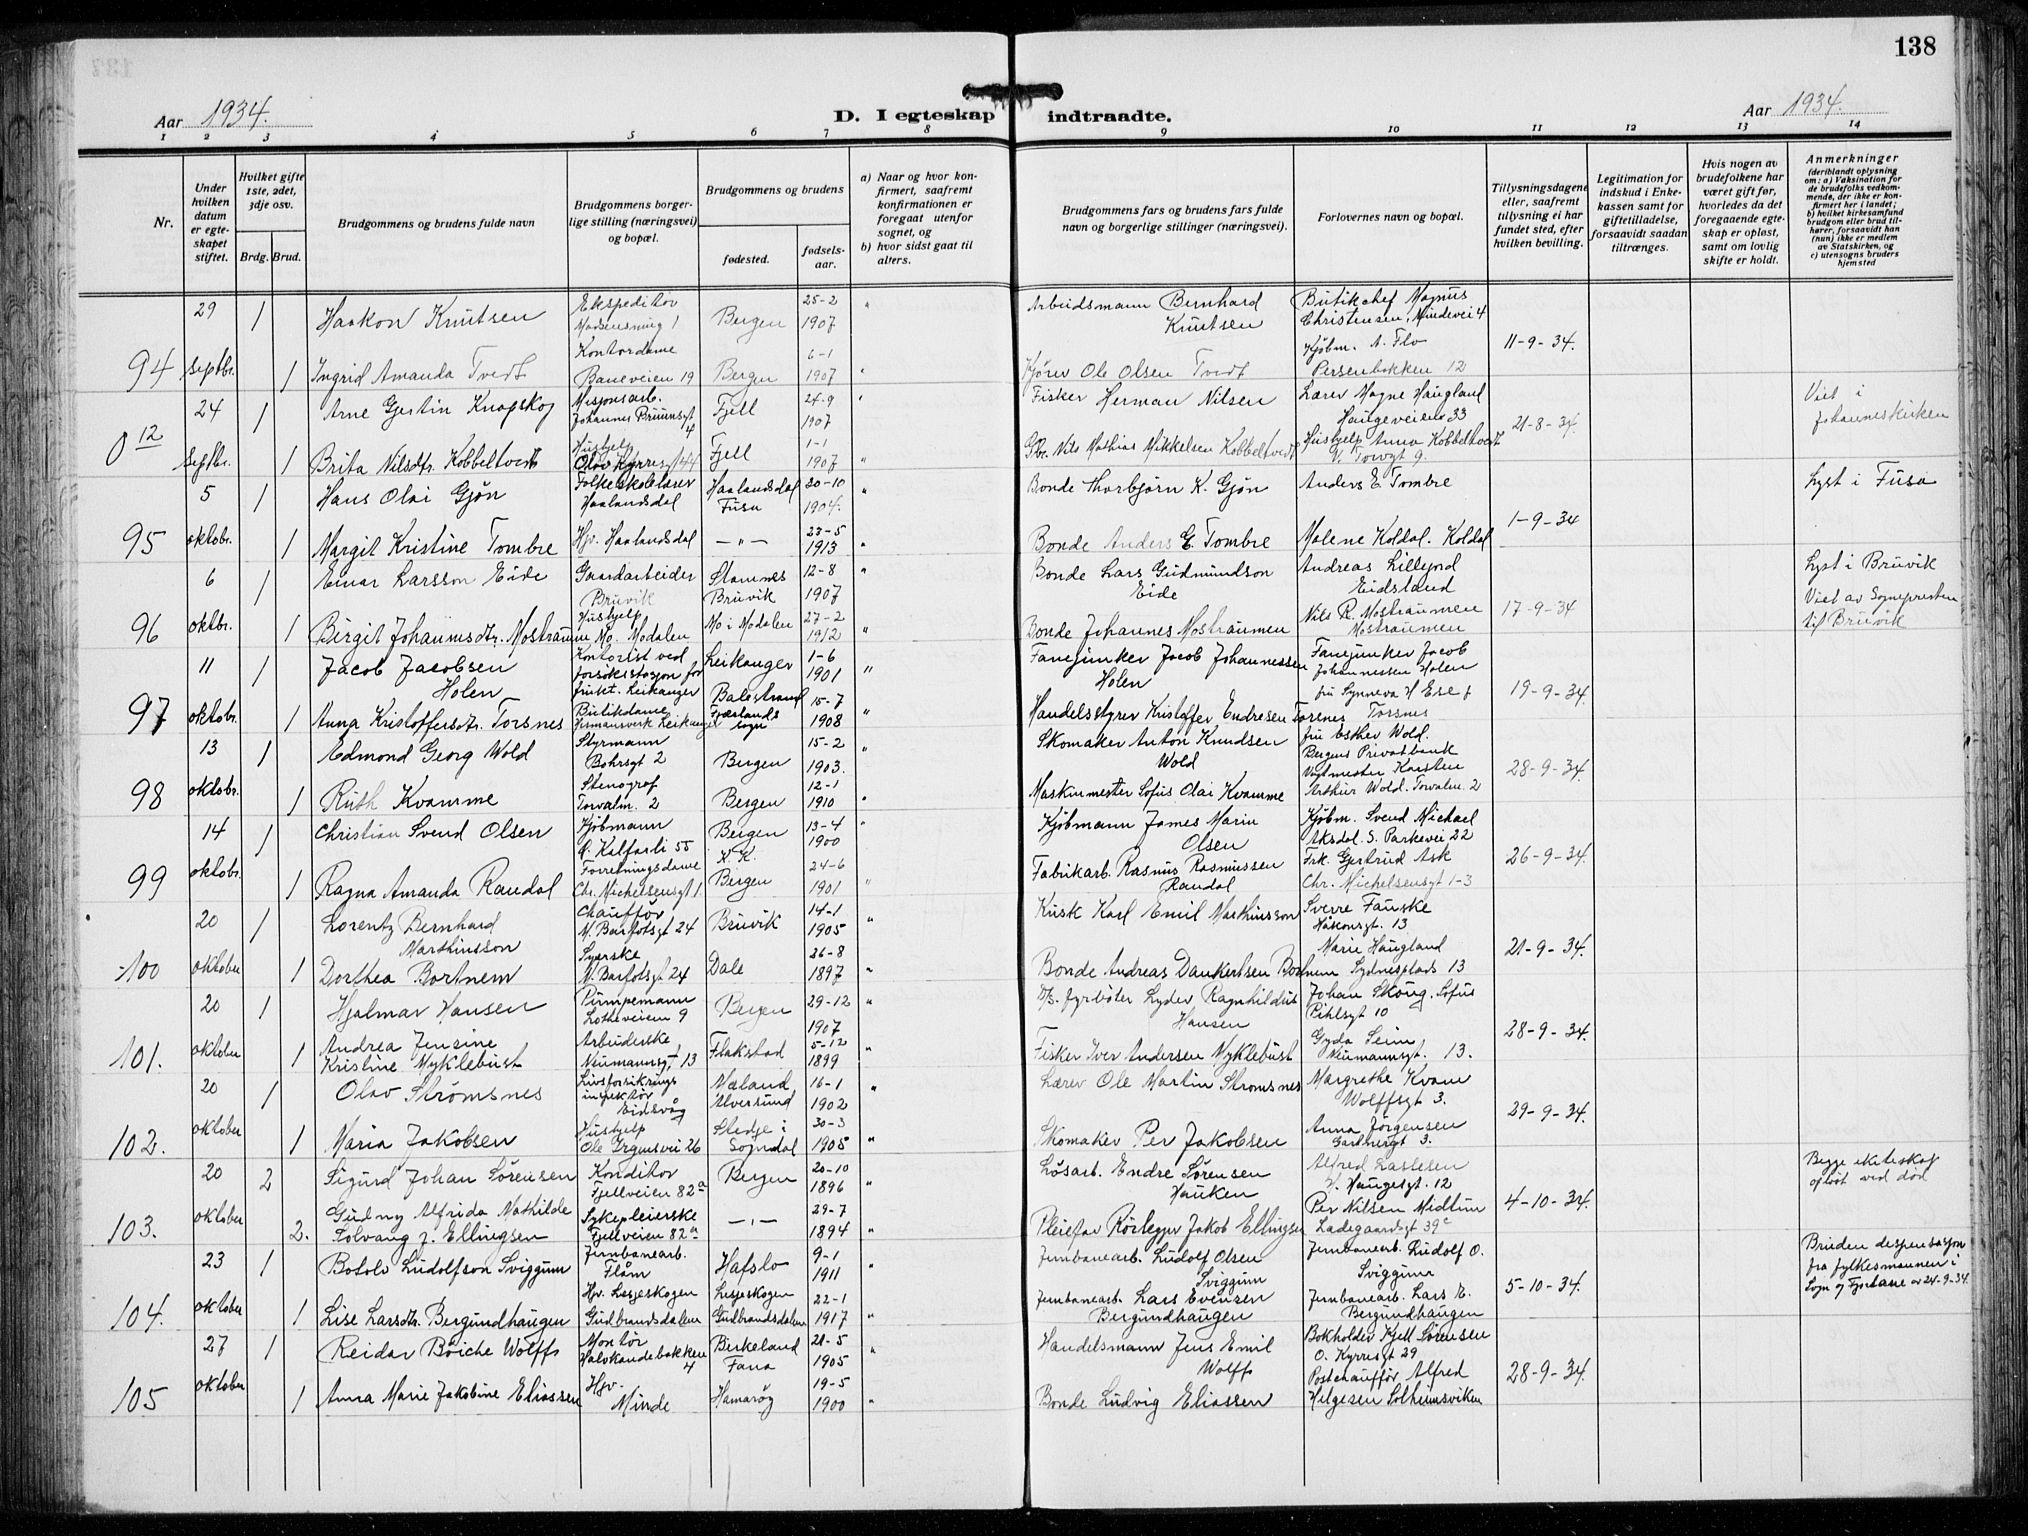 138
Aar 1934.
D. I egteskap indtraadte.
Aar 1934.
1 2 3 4 5 6 7 8 9 10 11 12 13 14
Nr.
Under hvilken datum er egteskapet stiftet.
Hvilket gifte 1ste, 2det, 3dje osv.
Brdg. Brud.
Brudgommens og brudens fulde navn
Brudgommens borgerlige stilling (næringsvei) og bopæl.
Brudgommens og brudens
fødested.
fødselsaar.
a) Naar og hvor konfirmert, saafremt konfirmationen er foregaat utenfor sognet, og
b) hvor sidst gaat til alters.
Brudgommens fars og brudens fars fulde navn og borgerlige stillinger (næringsvei).
Forlovernes navn og bopæl.
Tillysningsdagene eller, saafremt tillysning ei har fundet sted, efter hvilken bevilling.
Legitimation for indskud i Enkekassen samt for giftetilladelse, forsaavidt saadan tiltrænges.
Hvis nogen av brudefolkene har været gift før, hvorledes da det foregaaende egteskap er opløst, samt om lovlig skifte er holdt.
Anmerkninger (deriblandt oplysning om: a) Vaksination for de brudefolks vedkommende, der ikke er konfirmert her i landet; b) hvilket kirkesamfund brudgom eller brud tilhører, forsaavidt han (hun) ikke er medlem av Statskirken, og c) utensogns bruders hjemsted
94 29 Septbr. 1 Haakon Knutsen Ekspeditør Bergen 25-2 1907 " Arbeidsmann Bernhard Knutsen Butikchef Magnus Christensen, Mindevei 4
1 Ingrid Amanda Tvedt Kontordame Baneveien 19 Bergen 6-1 1907 " Kjører Ole Olsen Tvedt Kjøbm. A. Flo Persenbakken 12 11-9-34.
0 12 24 Septbr. 1 Arne Gjertin Knapskog Misjonsarb. Johannes Bruunsgt 4 Fjell 24-9 1907 " Fisker Herman Nilsen Lærer Magne Haugland Haugeveien 33 21-8-34. Viet i Johanneskirken
1 Brita Nilsdtr. Kobbeltvedt Hushjelp Olav Kyrresgt 44 Fjell 1-1 1907 " Gbr. Nils Mathias Mikkelsen Kobbeltvedt Hushjelp Anna Kobbeltvedt V. Torvgt 9.
95 5 oktobr. 1 Hans Olai Gjøn Folkeskolelærer Haalandsdal Haalandsdal Fusa 20-10 1904. " Bonde Thorbjørn K. Gjøn Anders E. Tombre 1-9-34 Lyst i Fusa
1 Margit Kristine Tombre Hjv. Haalandsdal —"— 23-5 1913 " Bonde Anders E. Tombre Malene Koldal. Koldal
96 6 oktbr. 1 Einar Larsson Eide Gaardarbeider Bruvik Stamnes Bruvik 12-8 1907 " Bonde Lars Gudmundson Eide Andreas Lillejord Eidsland 17-9-34 Lyst i Bruvik
1 Birgit Johannesdtr. Mostraumen Hushjelp Mo. Modalen Mo i Modalen 27-2 1912 " Bonde Johannes Mostraumen Nils R. Mostraumen Mostraumen Viet av Sognepresten til Bruvik
97 11 oktobr. 1 Jacob Jacobsen Holen Kontorist ved forsøksstasjon for frukt. Leikanger Leikanger 1-6 1901 " Fanejunker Jacob Johannessen Holen Fanejunker Jacob Johannessen Holen 19-9-34.
1 Anna Kristoffersdtr. Torsnes Butikdame Hermansverk Leikanger Balestrand Fjærlands sogn 15-7 1908 " Handelsstyrer Kristoffer Endresen Torsnes fru Synneva H Ese f Torsnes
98 13 oktobr. 1 Edmond Georg Wold Styrmann Bohrsgt 2 Bergen 15-2 1903. " Skomaker Anton Knudsen Wold fru Esther Wold. Bergens Privatbank 28-9-34.
1 Ruth Kvamme Stenograf Torvalm. 2 Bergen 12-1 1910 " Maskinmester Sofus Olai Kvamme Vagtmester Karsten Arthur Wold. Torvalm. 2
99 14 oktobr. 1 Christian Svend Olsen Kjøbmann Ø. Kalfarli 55 Bergen K.K. 13-4 1900 " Kjøbmann James Marin Olsen Kjøbm. Svend Michael Aksdal. S. Parkevei 22 26-9-34.
1 Ragna Amanda Randal Forretningsdame Chr. Michelsensgt 1 Bergen 24-6 1901 " Fabrikarb. Rasmus Rasmussen Randal Frk. Gjertrud Ask Chr. Michelsensgt 1-3
100 20 oktober 1 Lorentz Bernhard Marthinsson Chauffør M. Barfotsgt 24 Bruvik 14-1 1905 " Kusk Karl Emil Marthinsson Sverre Fauske Håkonsgt. 13 21-9-34.
1 Dorthea Bortnem Syerske M. Barfotsgt 24 Dale 26-8 1897 " Bonde Andreas Dankertsen Bortnem Marie Haugland Sydnesplads 13
101. 20 oktober 1 Hjalmar Hansen Pumpemann Lotheveien 9 Bergen 29-12 1907 " D/s. fyrbøter Lyder Ragnhildus Hansen Johan Skoug. Sofus Pihlsgt 10 28-9-34.
1 Andrea Jensine Kristine Myklebust Arbeiderske Neumannsgt 13 Flakstad 5-12 1899 " Fisker Iver Andersen Myklebust Gyda Seim Neumannsgt. 13.
102. 20 oktober 1 Olav Strømsnes Livsforsikrings inspektør Eidsvåg Mæland, Alversund 16-1 1902 " Lærer Ole Martin Strømsnes Margrethe Kvam Wolffsgt 3. 29-9-34.
1 Maria Jakobsen Hushjelp Ole Irgensvei 26 Stedje i Sogndal 30-3 1905 " Skomaker Per Jakobsen Anna Jørgensen 3.
103. 20 oktober 2 Sigurd Johan Sørensen Konditor Fjellveien 82a Bergen 20-10 1896 " Løsarb. Endre Sørensen Hauken Alfred Lastesen H. Haugesgt. 12 4-10-34. Begge ekteskap opløst ved død
2. Gudny Alfrida Mathilde Solvang f. Ellingsen Sykepleierske Fjellveien 82a —"— 29-7 1894 " Pleiefar Rørlegger Jakob Ellingsen Per Nilsen Midttun Ladegaardsgt 39c
104. 23 oktober 1 Botolv Ludolfson Sviggum Jernbanearb. Flåm Hafslo 9-1 1911 " Jernbanearb. Ludolf Olsen Sviggum Jernbanearb. Ludolf O. Sviggum 5-10-34. Bruden despensasjon fra fylkesmannen i Sogn og Fjordane av 24-9-34.
1 Lise Larsdtr. Bergundhaugen Hjv. Lesjeskogen Gudbrandsdalen Lesjeskogen Gudbrandsdalen 22-1 1917 " Jernbanearb. Lars Evensen Bergundhaugen Jernbanearb. Lars E. Bergundhaugen
105 27 oktober 1 Reidar Böiche Wolff Montør Halvkandebakken 4 Birkeland Fana 21-5 1905 " Handelsmann Jens Emil Wolff Bokholder Kjell Sørensen O. Kyrresgt 29 28-9-34.
1 Anna Marie Jakobine Eliassen Hjv. Minde Hamarøy 19-5 1900 " Bonde Ludvig Eliassen Postchauffør Alfred Helgesen Solheimsviken